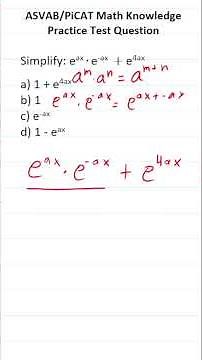 ASVAB/PiCAT Math Knowledge
Practice Test Question
Simplify: eᵃˣ · e⁻ᵃˣ + e⁴ᵃˣ
a) 1 + e⁴ᵃˣ aᵐ · aⁿ = aᵐ⁺ⁿ
b) 1 eᵃˣ · e⁻ᵃˣ = eᵃˣ⁺⁻ᵃˣ
c) e⁻ᵃˣ
d) 1 - eᵃˣ
eᵃˣ · e⁻ᵃˣ + e⁴ᵃˣ